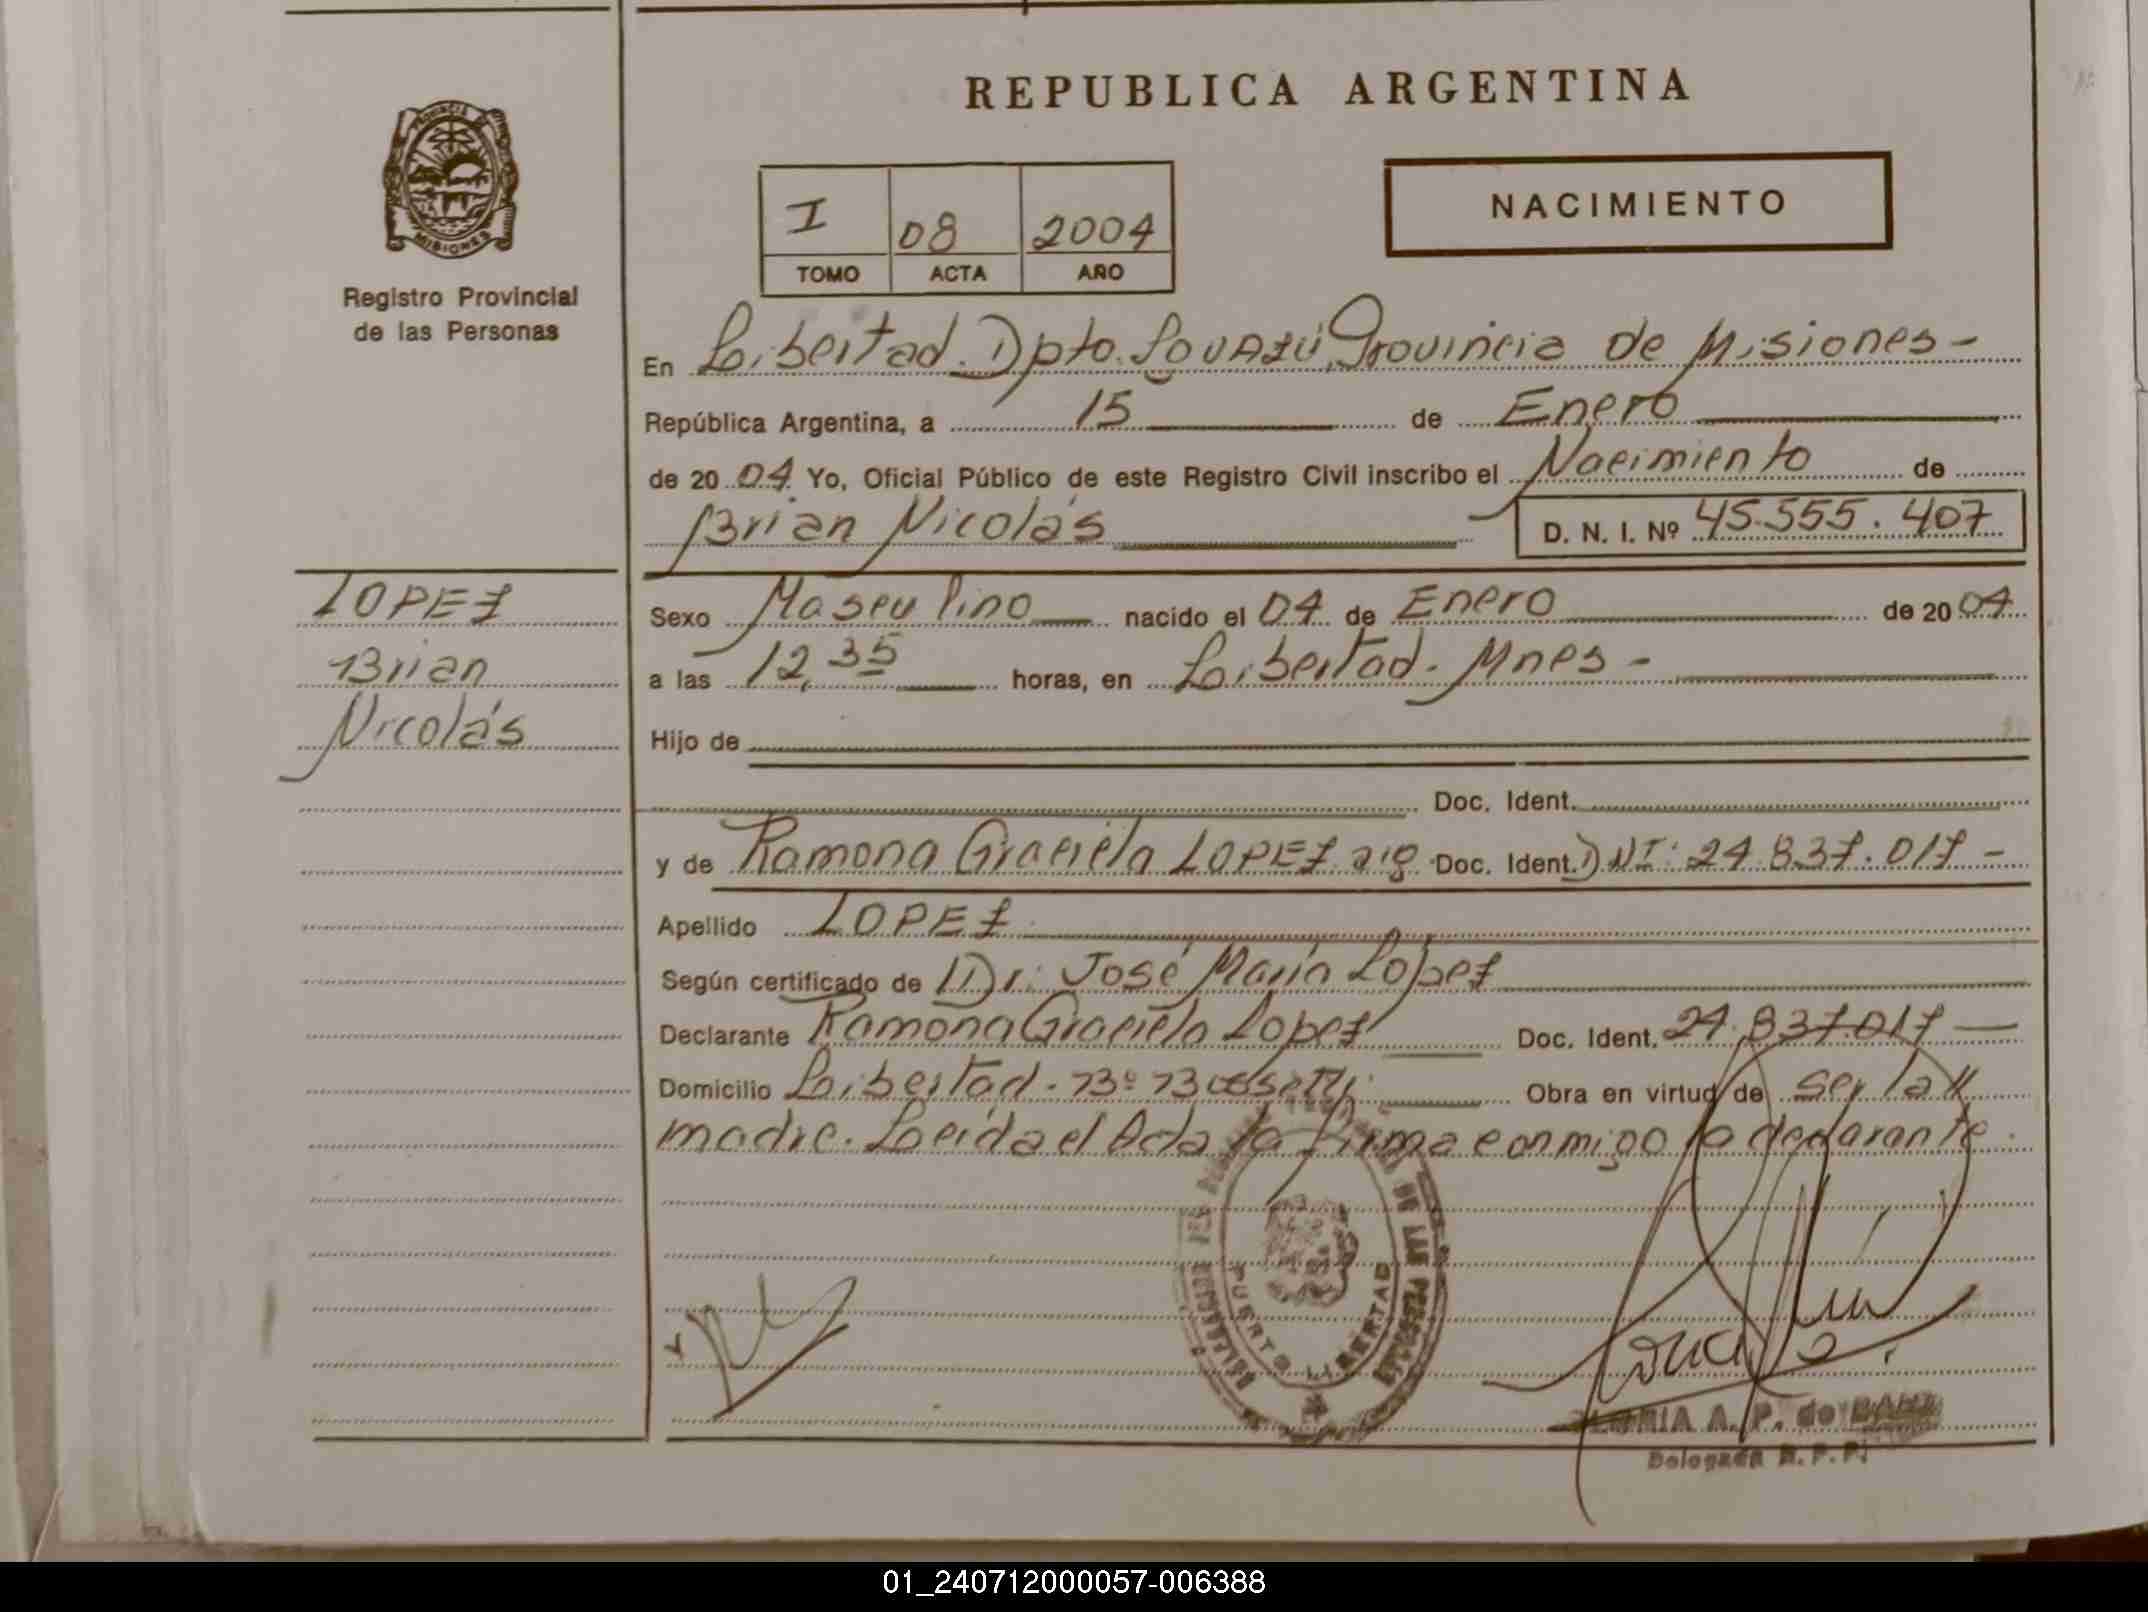 REPUBLICA ARGENTINA
PROVINCIA DE
MISIONES
Registro Provincial
de las Personas
I 08 2004
TOMO ACTA AÑO
NACIMIENTO
En Libertad. Dpto. Iguazú, Provincia de Misiones-
República Argentina, a 15 de Enero
de 2004 Yo, Oficial Público de este Registro Civil inscribo el Nacimiento de
Brian Nicolás D. N. I. Nº 45.555.407
LOPEZ
Brian
Nicolás
Sexo Masculino nacido el 04 de Enero de 2004
a las 12,35 horas, en Libertad. Mnes-
Hijo de
Doc. Ident.
y de Ramona Graciela LOPEZ arg. Doc. Ident. DNI: 24.837.017-
Apellido LOPEZ
Según certificado de Dr. José María Lopez
Declarante Ramona Graciela Lopez Doc. Ident. 24.837.017
Domicilio Libertad. Bº Obra en virtud de ser la
madre. Leída el Acta la firma conmigo la declarante.
DE LAS PERSONAS
PUERTO LIBERTAD
A. P. de
Delegada R. P. P.
01_240712000057-006388